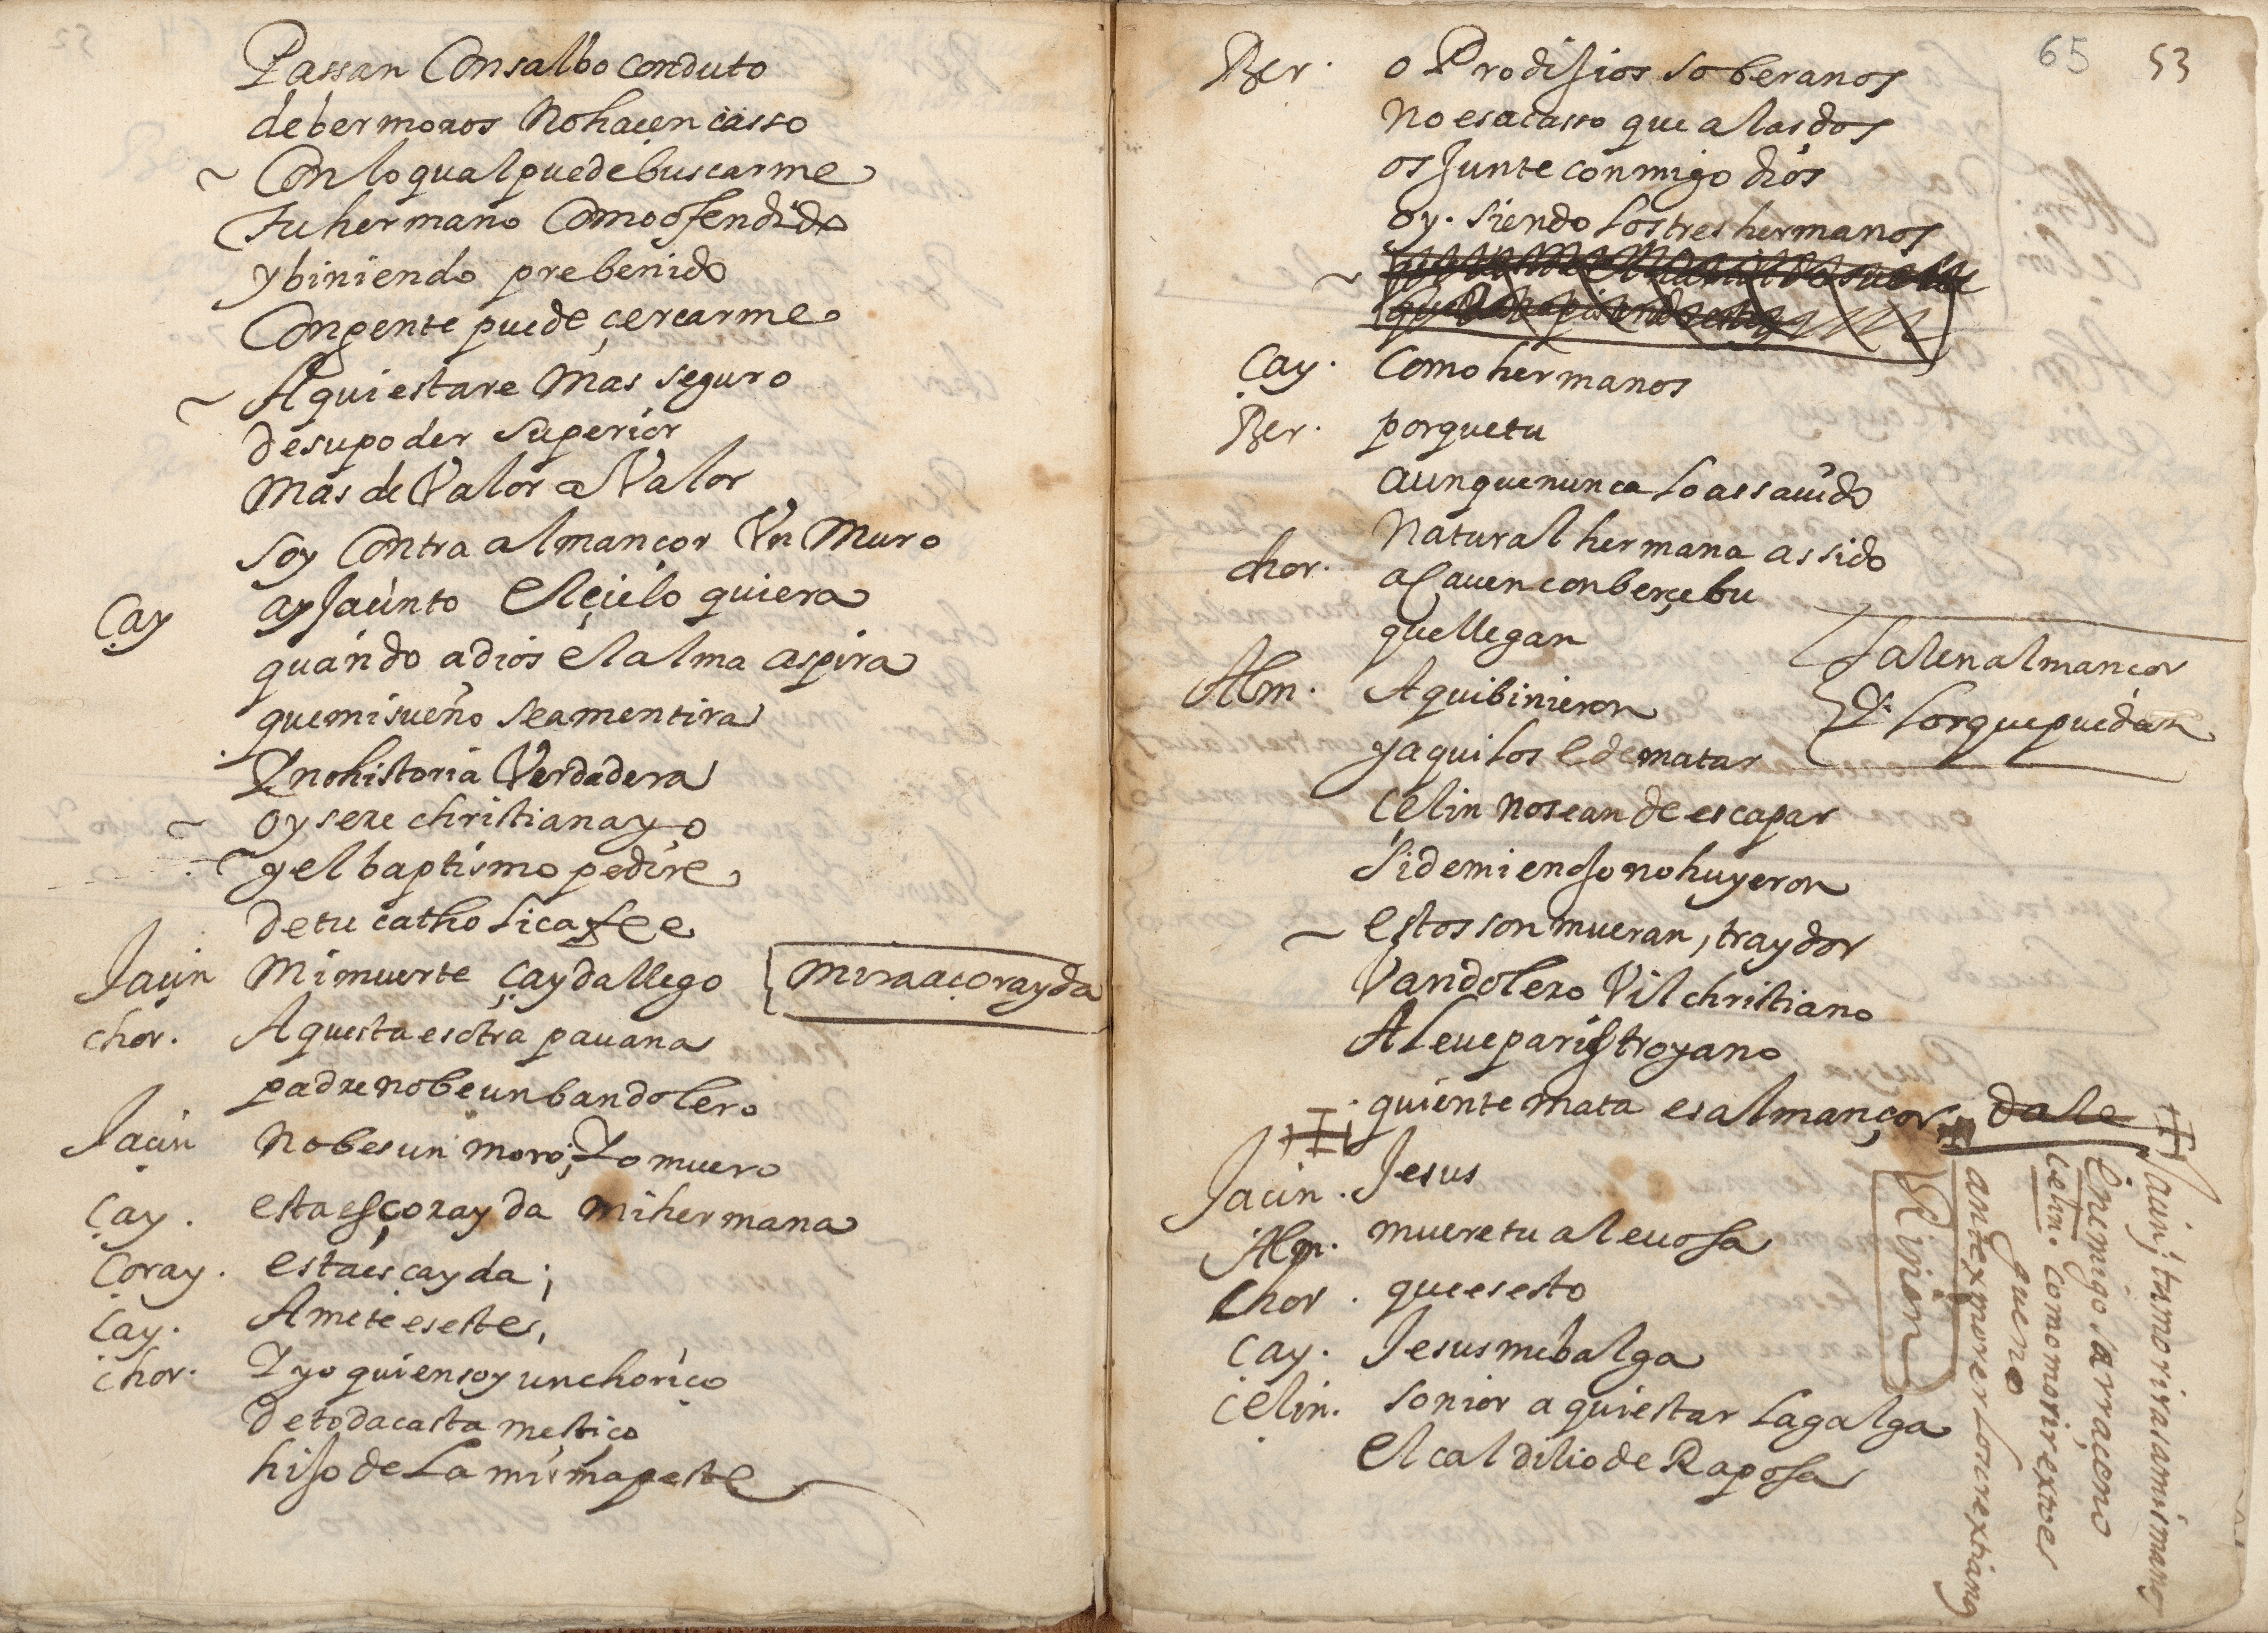 Passan Consalbo conduto
de ber moros No hacen casso
Con lo qual puede buscarme
tu hermano Como ofendido
y biniendo prebenido
Con gente puede çercarme
Aqui estare Mas seguro
de su poder Superior
Mas de Valor a Valor
soy Contra almançor Vn Muro
Çay ay Jaçinto El çielo quiera
quando a dios el alma aspira
que mi sueño sea mentira
Y no historia Verdadera
oy sere christiana yo
y el baptismo pedire
de tu catholica fee
Jaçin Mi muerte çayda llego mira a çorayda
chor. Aquesta es otra pauana
padre no be un bandolero
Jaçin No bes un moro; Yo muero
Çay. esta es çorayda mi hermana
Coray. esta es cayda;
Çay. Amete es este,
chor. Y yo quien soy un choriço
de toda casta mestiço
hijo de La misma peste
65 53
Ber. o Prodijios soberanos
No es acasso que a las dos
os Junte conmigo dios
oy. siendo Los tres hermanos
Çay. Como hermanos
Ber. porque tu
aunque nunca Lo as sauido
Natural hermana as sido
chor. acauen con berçebu
que llegan
Salen almançor
Y Los que puedan
Alm. Aqui binieron
y aqui Los e de matar
Çelin No se an de escapar
si de mi enojo no huyeron
estos son mueran, traydor
Vandolero Vil christiano
Aleue paris troyano
quien te mata es almançor dale
Jaçin. Jesus
Alm. muere tu aleuosa
Chor. que es esto
Çay. Jesus me balga
Çelin. sonior aqui estar La galga
el caldilio de Raposa
Jaçin; tu moriras a mis manos
Enemigo sarraçeno
Celin. como morir extes
gueno
antex morer Locrextiano
Riñen